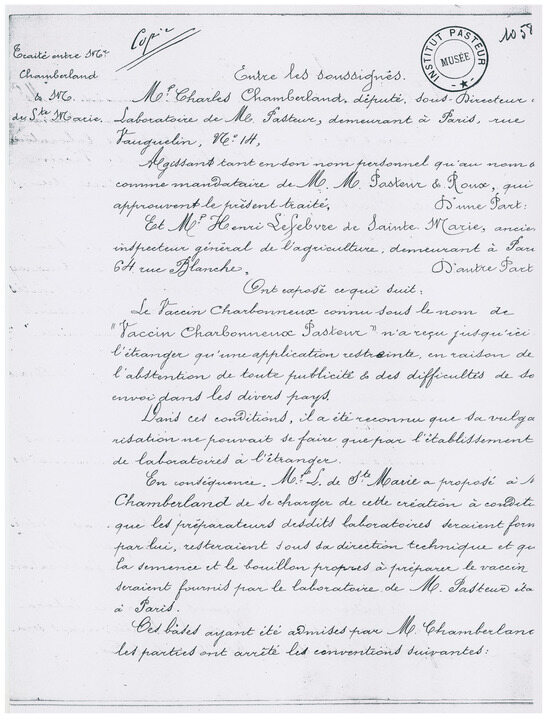 Copie
1059
INSTITUT PASTEUR
MUSÉE
Traité entre Mr.
Chamberland
& M.
de Ste Marie.
Entre les soussignés.
Mr. Charles Chamberland, député, sous-Directeur
Laboratoire de M. Pasteur, demeurant à Paris, rue
Vauquelin, No. 14,
Agissant tant en son nom personnel qu'au nom &
comme mandataire de M. M. Pasteur & Roux, qui
approuvent le présent traité, D'une Part:
Et Mr. Henri Lefebvre de Sainte Marie, ancien
inspecteur général de l'agriculture, demeurant à Pari
64 rue Blanche, D'autre Part
Ont exposé ce qui suit:
Le Vaccin Charbonneux connu sous le nom de
"Vaccin Charbonneux Pasteur" n'a reçu jusqu'ici
l'étranger qu'une application restreinte, en raison de
l'abstention de toute publicité & des difficultés de so
envoi dans les divers pays.
Dans ces conditions, il a été reconnu que sa vulga
risation ne pouvait se faire que par l'établissement
de laboratoires à l'étranger.
En conséquence, Mr. L. de Ste Marie a proposé à M
Chamberland de se charger de cette création à conditi
que les préparateurs desdits laboratoires seraient forn
par lui, resteraient sous sa direction technique et qu
la semence et le bouillon propres à préparer le vaccin
seraient fournis par le laboratoire de M. Pasteur éta
à Paris.
Ces bases ayant été admises par M. Chamberland
les parties ont arrêté les conventions suivantes: